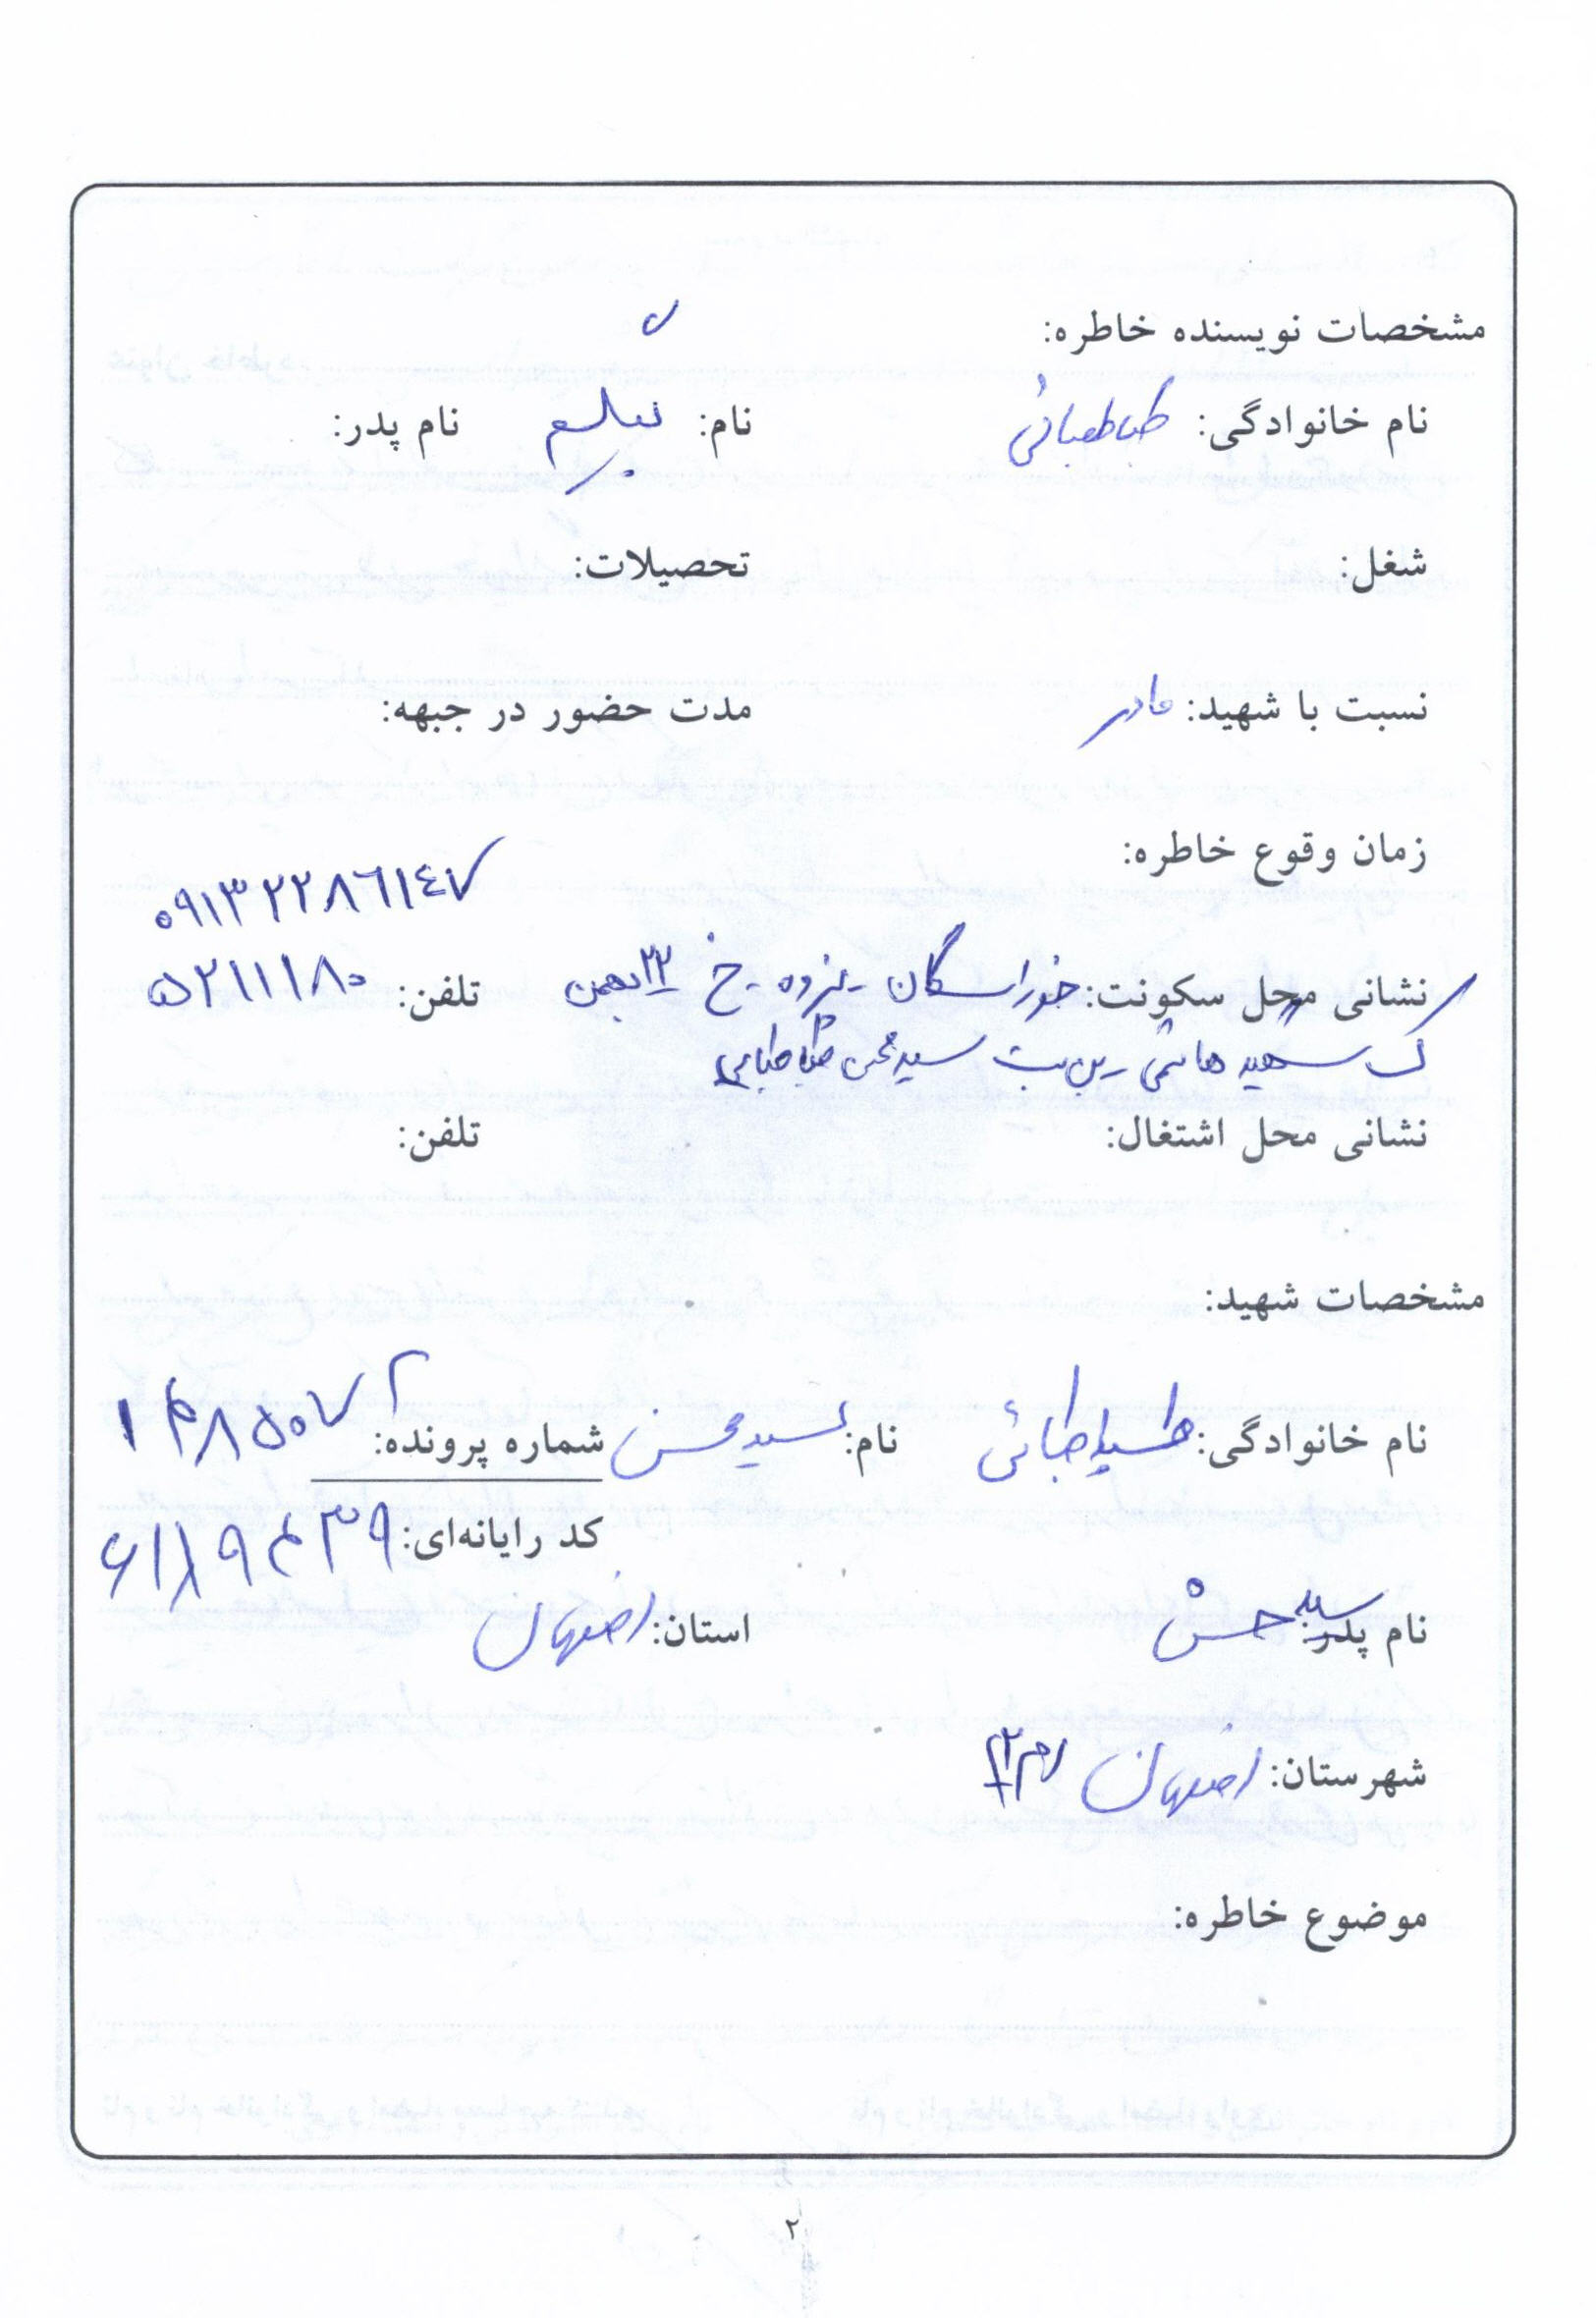 مشخصات نویسنده خاطره:
نام خانوادگی: طباطبائی نام: بیگم نام پدر:
شغل: تحصیلات:
نسبت با شهید: مادر مدت حضور در جبهه:
زمان وقوع خاطره:
۰۹۱۳۲۲۸۶۱۴۷
نشانی محل سکونت: خوراسگان - یزوه - خ ۲۲ بهمن تلفن: ۵۲۱۱۱۸۰
ک شهید هاشمی - بن بست سید محسن طباطبایی
نشانی محل اشتغال: تلفن:
مشخصات شهید:
نام خانوادگی: طباطبائی نام: سید محسن شماره پرونده:
کد رایانه‌ای:
نام پدر: سید حسن استان: اصفهان
شهرستان: اصفهان
موضوع خاطره:
۲